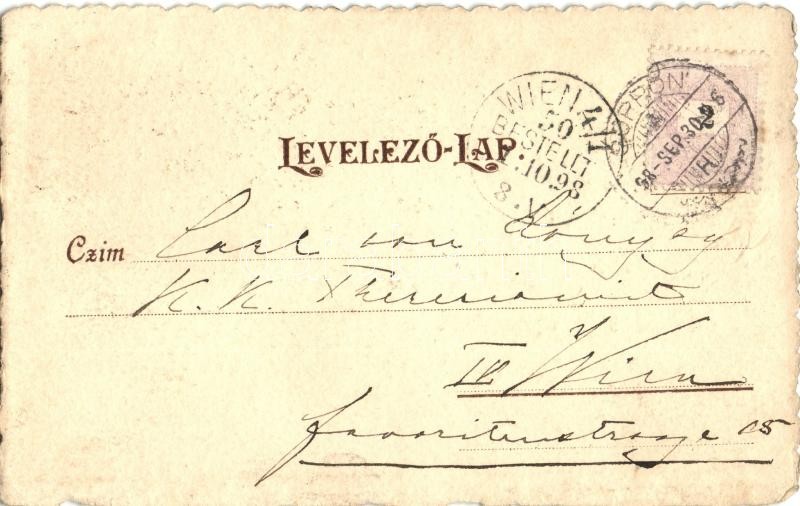 LEVELEZŐ-LAP
WIEN 4/1
50
BESTELLT
1.10.98
8.V
SOPRON
98-SEP.30
Czim Carl von Kónyay
K. K. Theresianist
IV Wien
Favoritenstrasse 15